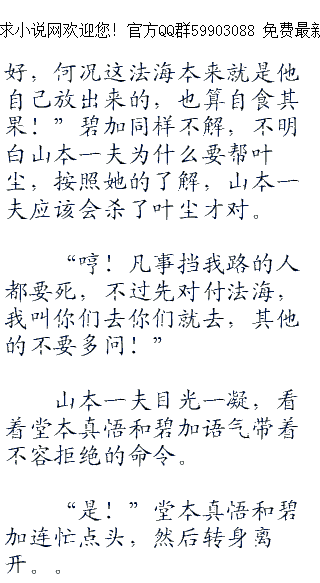 求小说网欢迎您！官方QQ群59903088 免费最新
好，何况这法海本来就是他
自己放出来的，也算自食其
果！”碧加同样不解，不明
白山本一夫为什么要帮叶
尘，按照她的了解，山本一
夫应该会杀了叶尘才对。
“哼！凡事挡我路的人
都要死，不过先对付法海，
我叫你们去你们就去，其他
的不要多问！”
山本一夫目光一凝，看
着堂本真悟和碧加语气带着
不容拒绝的命令。
“是！”堂本真悟和碧
加连忙点头，然后转身离
开。。